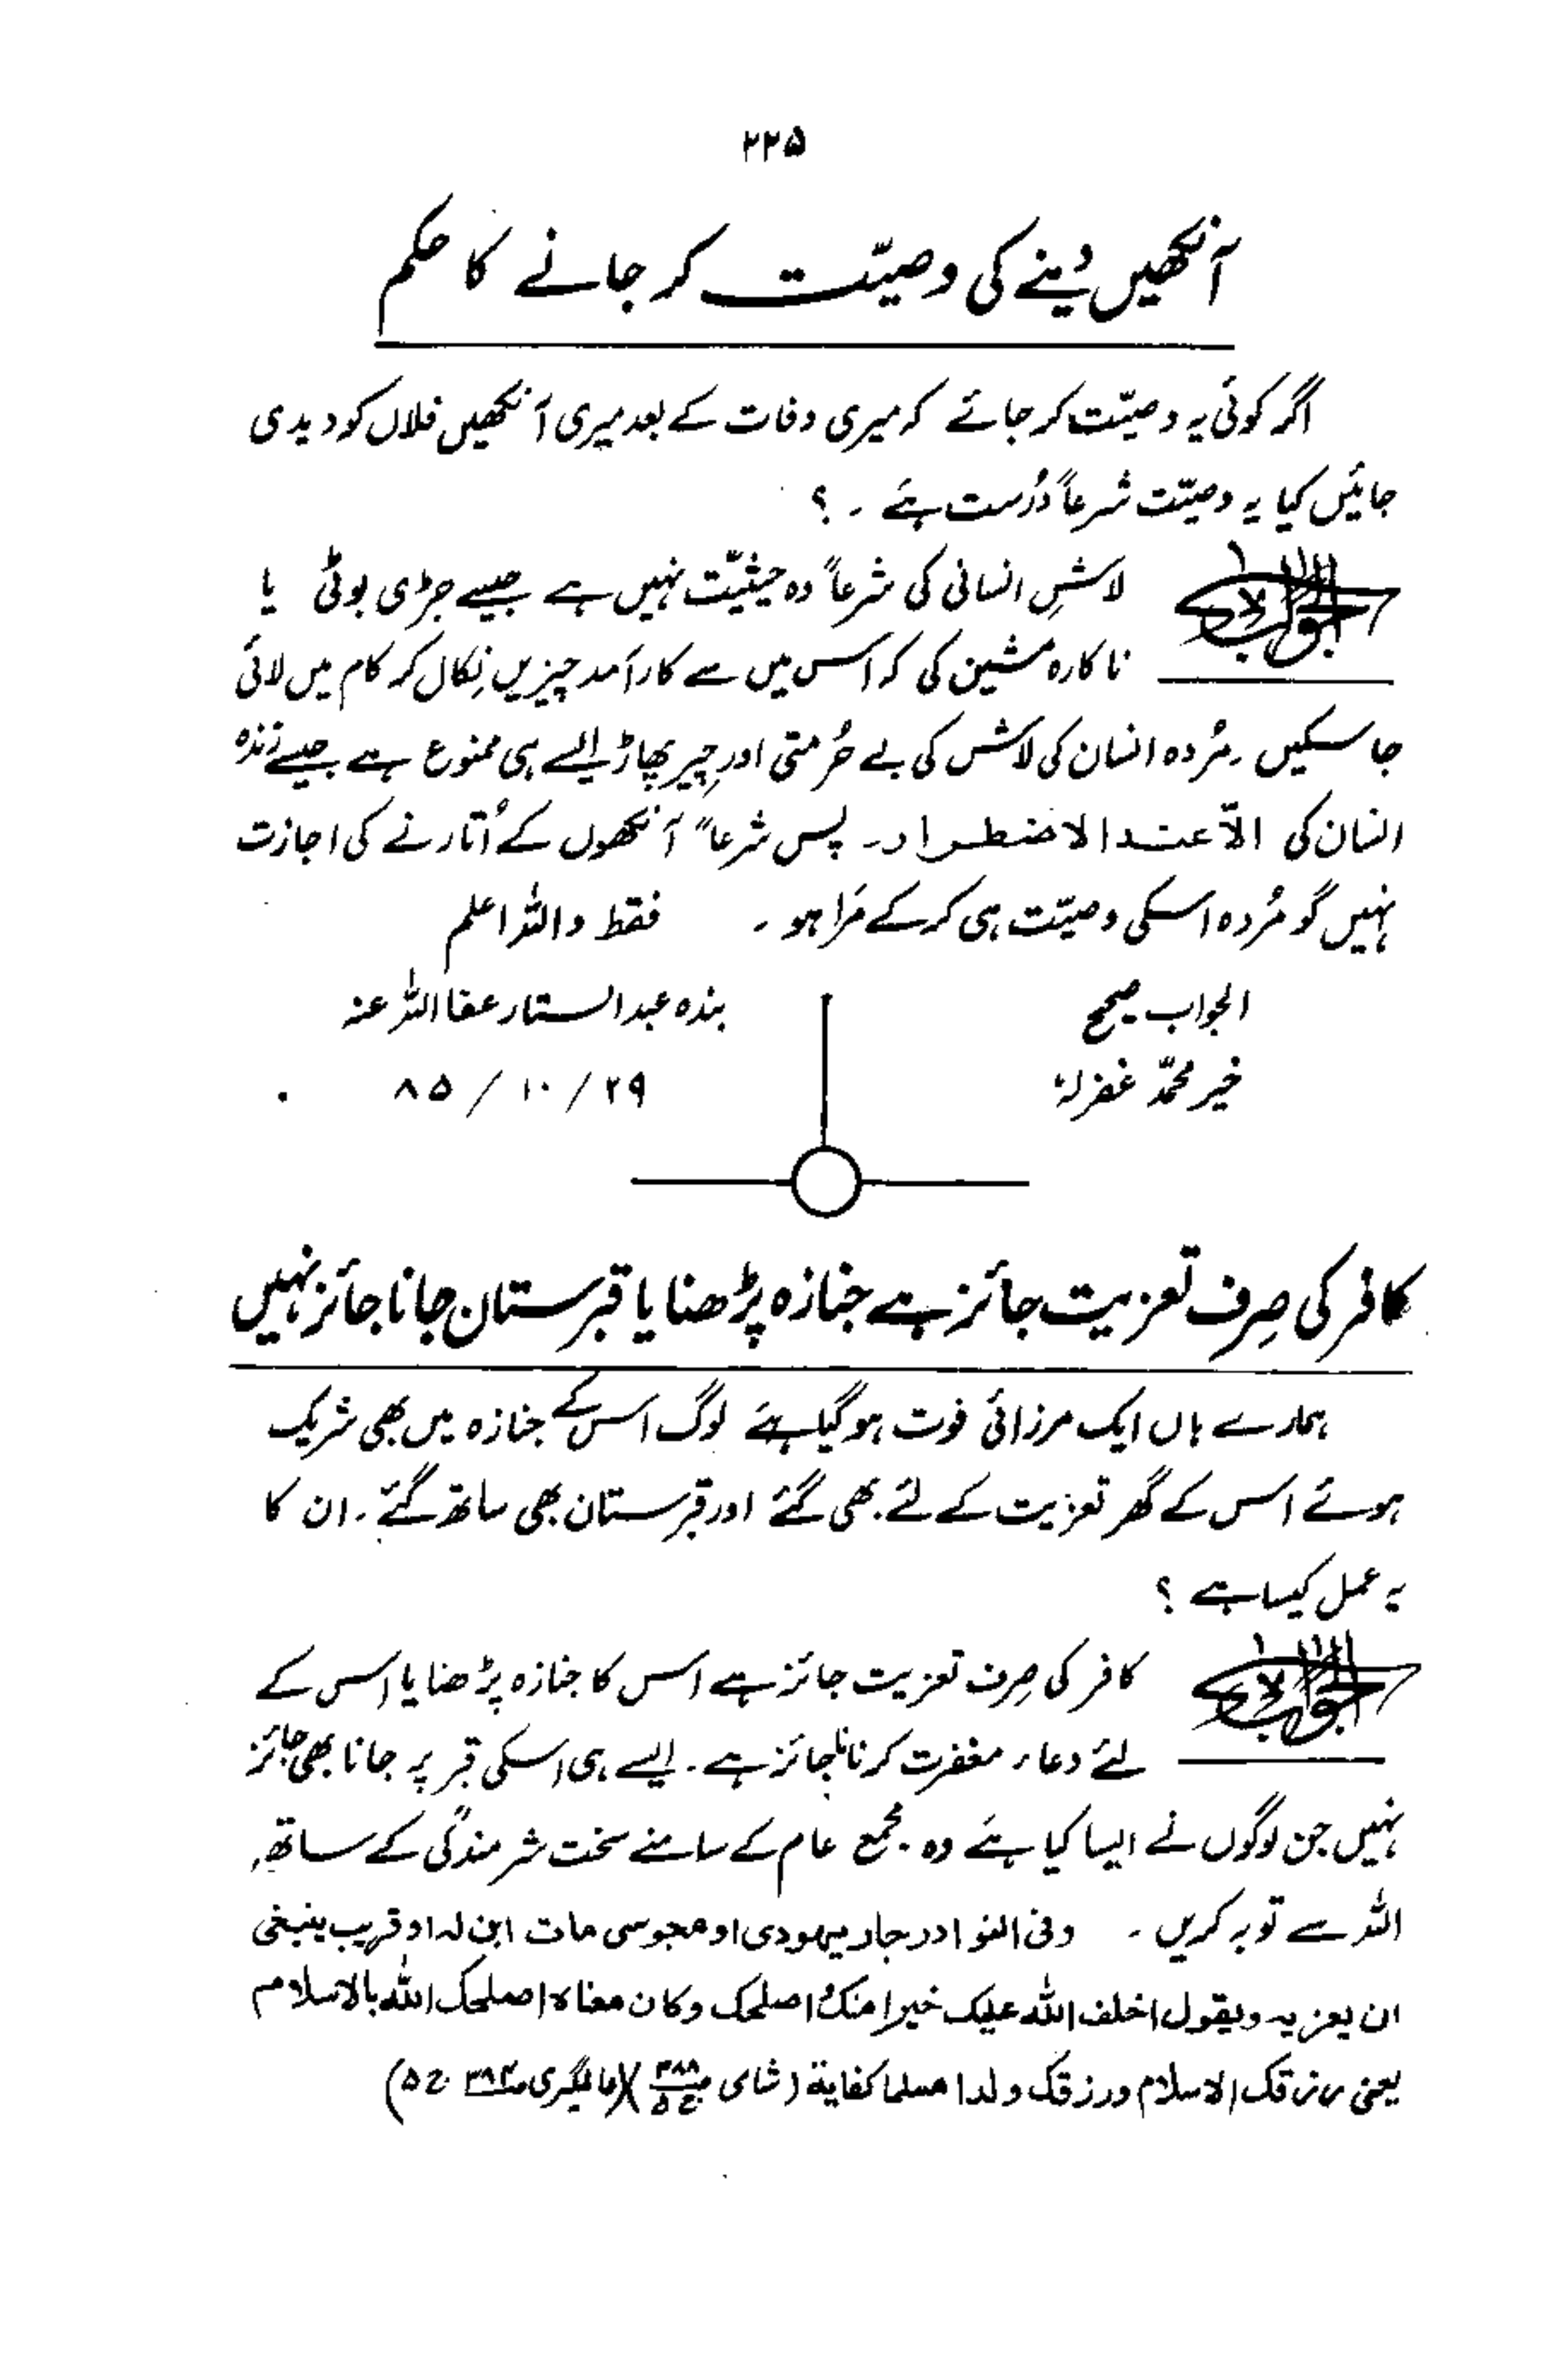 ۲۲۵
آنکھیں دینے کی وصیّت کر جانے کا حکم
اگر کوئی یہ وصیّت کر جائے کہ میری وفات کے بعد میری آنکھیں فلاں کو دیدی
جائیں کیا یہ وصیّت شرعاً دُرست ہے ۔ ؟
الجواب
لاشِ انسانی کی شرعاً وہ حیثیّت نہیں ہے جیسے جڑی بوٹی یا
ناکارہ مشین کی کہ اس میں سے کارآمد چیزیں نِکال کر کام میں لائی
جا سکیں ۔ مُردہ انسان کی لاش کی بے حُرمتی اور چِیر پھاڑ ایسے ہی ممنوع ہے جیسے زندہ
انسان کی الاّ عند الاضطرار۔ پس شرعاً آنکھوں کے اُتارنے کی اجازت
نہیں گو مُردہ اسکی وصیّت ہی کر کے مَرا ہو ۔ فقط واللہ اعلم
الجواب صحیح
بندہ عبدالستار عفا اللہ عنہ
خیر محمّد غفرلہٗ
۲۹ / ۱۰ / ۸۵
کافر کی صِرف تعزیت جائز ہے جنازہ پڑھنا یا قبرستان جانا جائز نہیں
ہمارے ہاں ایک مرزائی فوت ہو گیا ہے لوگ اس کے جنازہ میں بھی شریک
ہوئے اس کے گھر تعزیت کے لئے بھی گئے اور قبرستان بھی ساتھ گئے ۔ ان کا
یہ عمل کیسا ہے ؟
الجواب
کافر کی صِرف تعزیت جائز ہے اس کا جنازہ پڑھنا یا اس کے
لئے دعاء مغفرت کرنا ناجائز ہے ۔ ایسے ہی اسکی قبر پر جانا بھی جائز
نہیں جن لوگوں نے ایسا کیا ہے وہ مجمع عام کے سامنے سخت شرمندگی کے ساتھ
اللہ سے توبہ کریں ۔ وفی النوادر جار یہودی او مجوسی مات ابن لہ او قریب ینبغی
ان یعزیہ ویقول اخلف اللہ علیک خیرا منک اصلحک وکان معناہ اصلحک اللہ بالاسلام
یعنی رزقک الاسلام ورزقک ولدا مسلما کفایة (شامی ص۳۸۸ ج۵)(عالمگیری ص۳۸۳ ج۵)